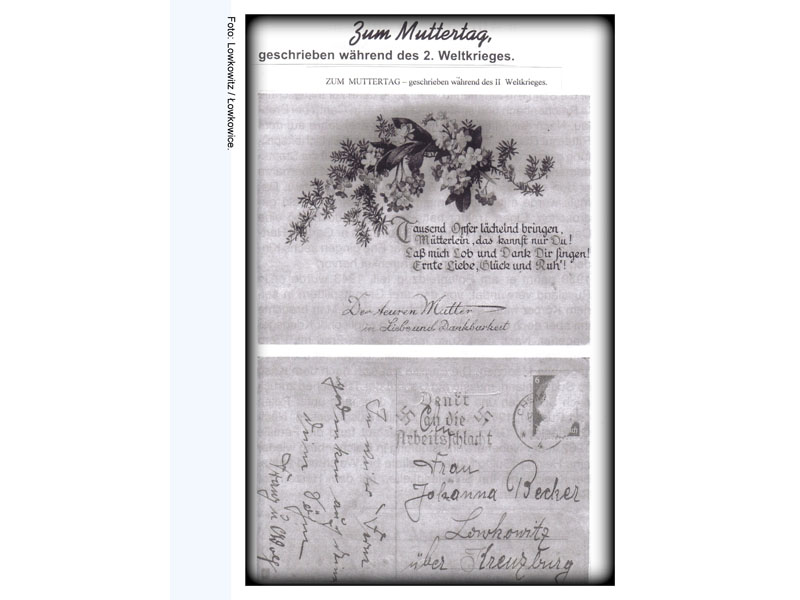 Foto: Lowkowitz / Łowkowice.
Zum Muttertag,
geschrieben während des 2. Weltkrieges.
ZUM MUTTERTAG – geschrieben während des II Weltkrieges.
Tausend Opfer lächelnd bringen,
Mütterlein, das kannst nur Du!
Laß mich Lob und Dank Dir singen!
Ernte Liebe, Glück und Ruh'!
Der teuren Mutter
in Liebe und Dankbarkeit
In weiter Ferne
gedenken auch
deine Söhne
Franz u Adolf
6
Denkt
an die
Arbeitsschlacht
Frau
Johanna Becher
Lowkowitz
über Kreuzburg